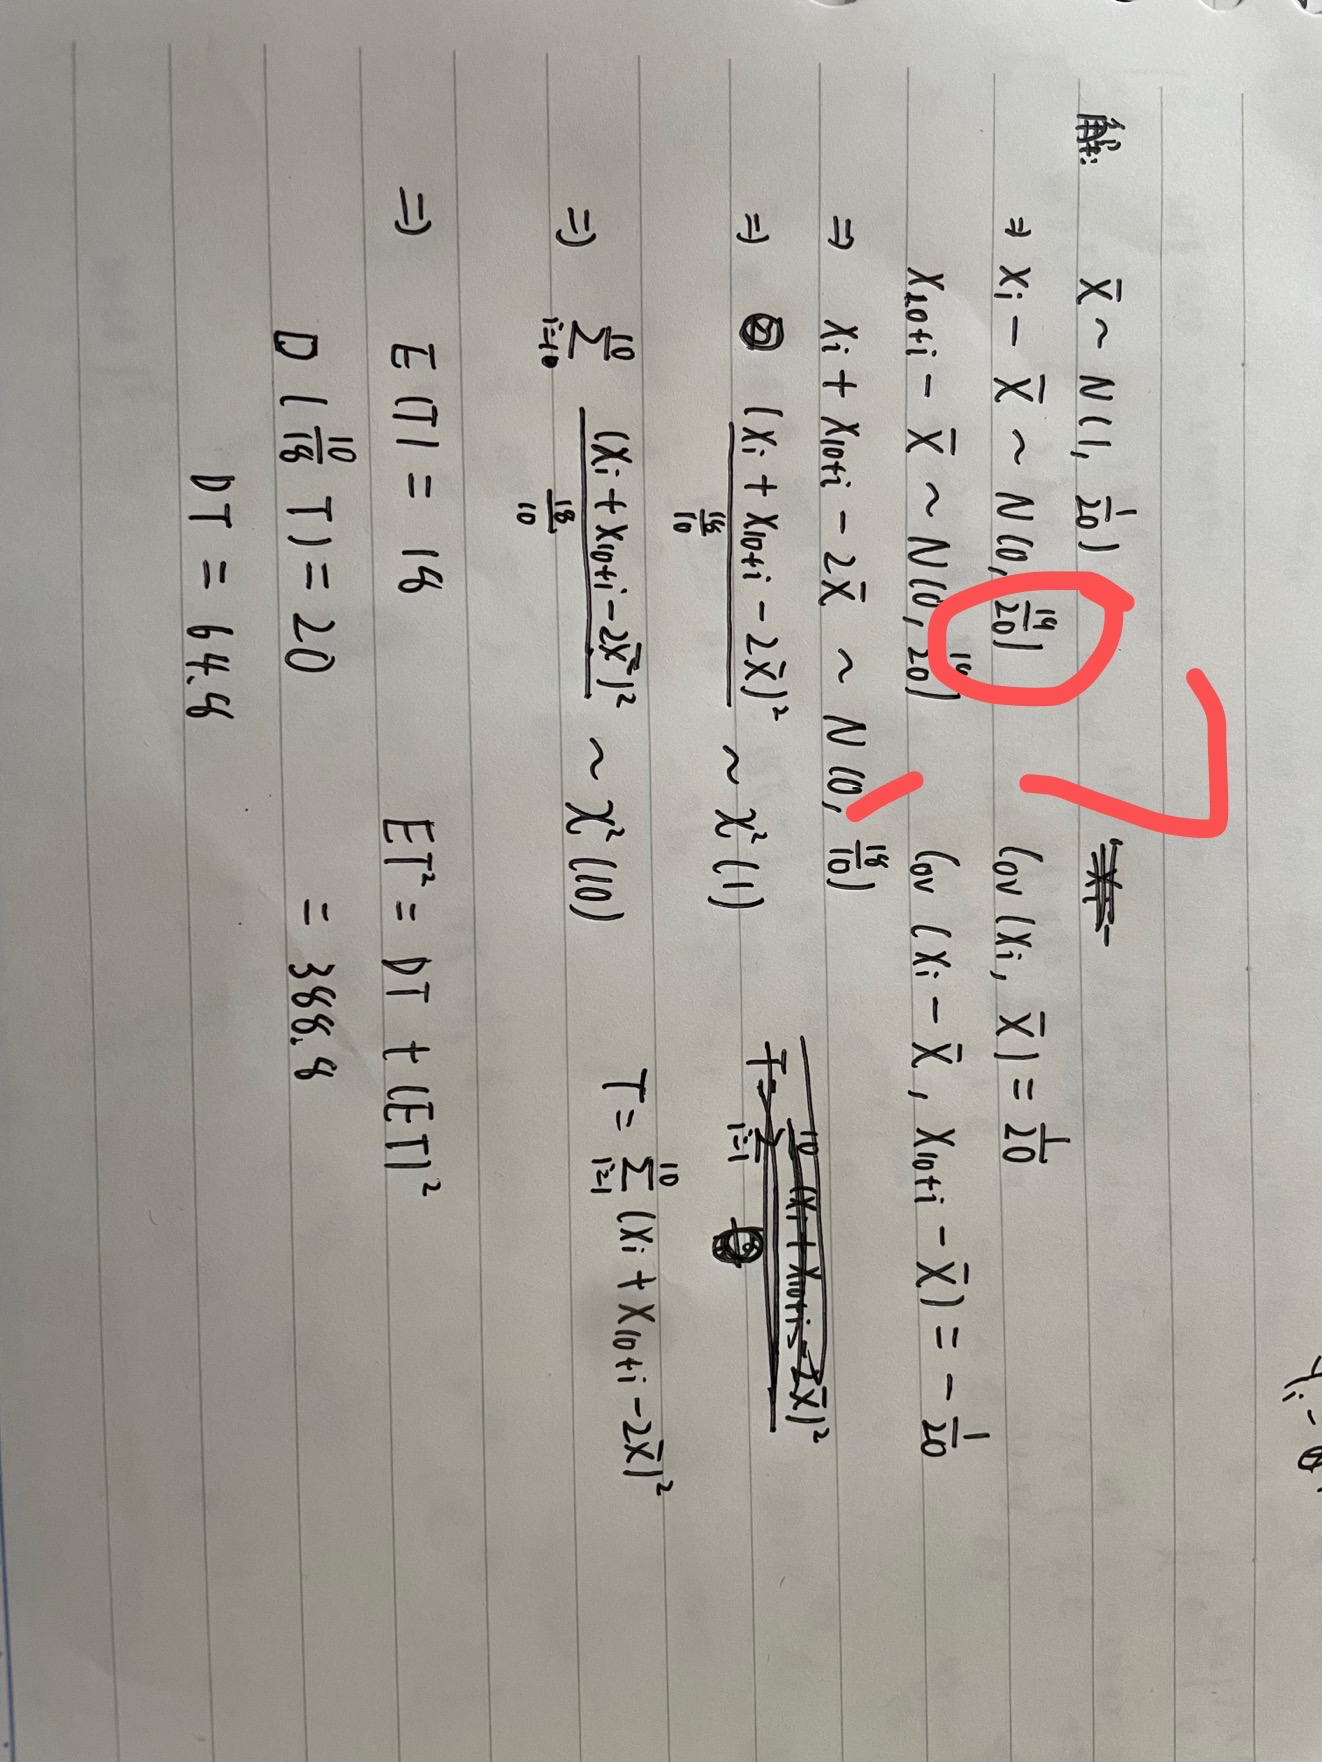 解: X̄ ~ N(1, 1/20)
⇒ Xi - X̄ ~ N(0, 19/20) Cov(Xi, X̄) = 1/20
X10+i - X̄ ~ N(0, 19/20) Cov(Xi - X̄, X10+i - X̄) = - 1/20
⇒ Xi + X10+i - 2X̄ ~ N(0, 18/10)
⇒ (Xi + X10+i - 2X̄)² / (18/10) ~ χ²(1)
⇒ 10 Σ i=10 (Xi + X10+i - 2X̄)² / (18/10) ~ χ²(10) T = 10 Σ i=1 (Xi + X10+i - 2X̄)²
⇒ E(T) = 18 ET² = DT + (ET)²
D(10/18 T) = 20 = 388.8
DT = 64.8